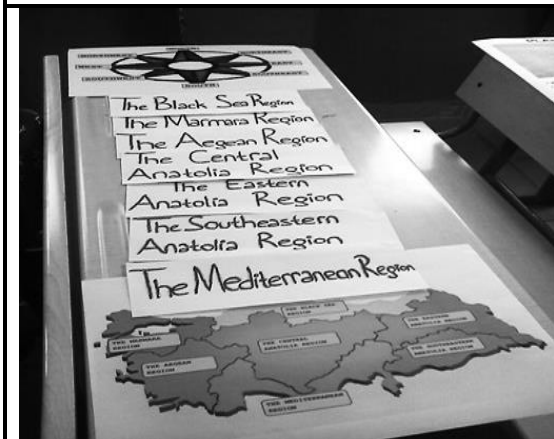 NORTHWEST
NORTHEAST
WEST
EAST
SOUTHWEST
SOUTHEAST
SOUTH
The Black Sea Region
The Marmara Region
The Aegean Region
The Central
Anatolia Region
The Eastern
Anatolia Region
The Southeastern
Anatolia Region
The Mediterranean Region
THE BLACK SEA
REGION
THE MARMARA
REGION
THE EASTERN
ANATOLIA REGION
THE CENTRAL
ANATOLIA REGION
THE SOUTHEASTERN
ANATOLIA REGION
THE AEGEAN
REGION
THE MEDITERRANEAN
REGION